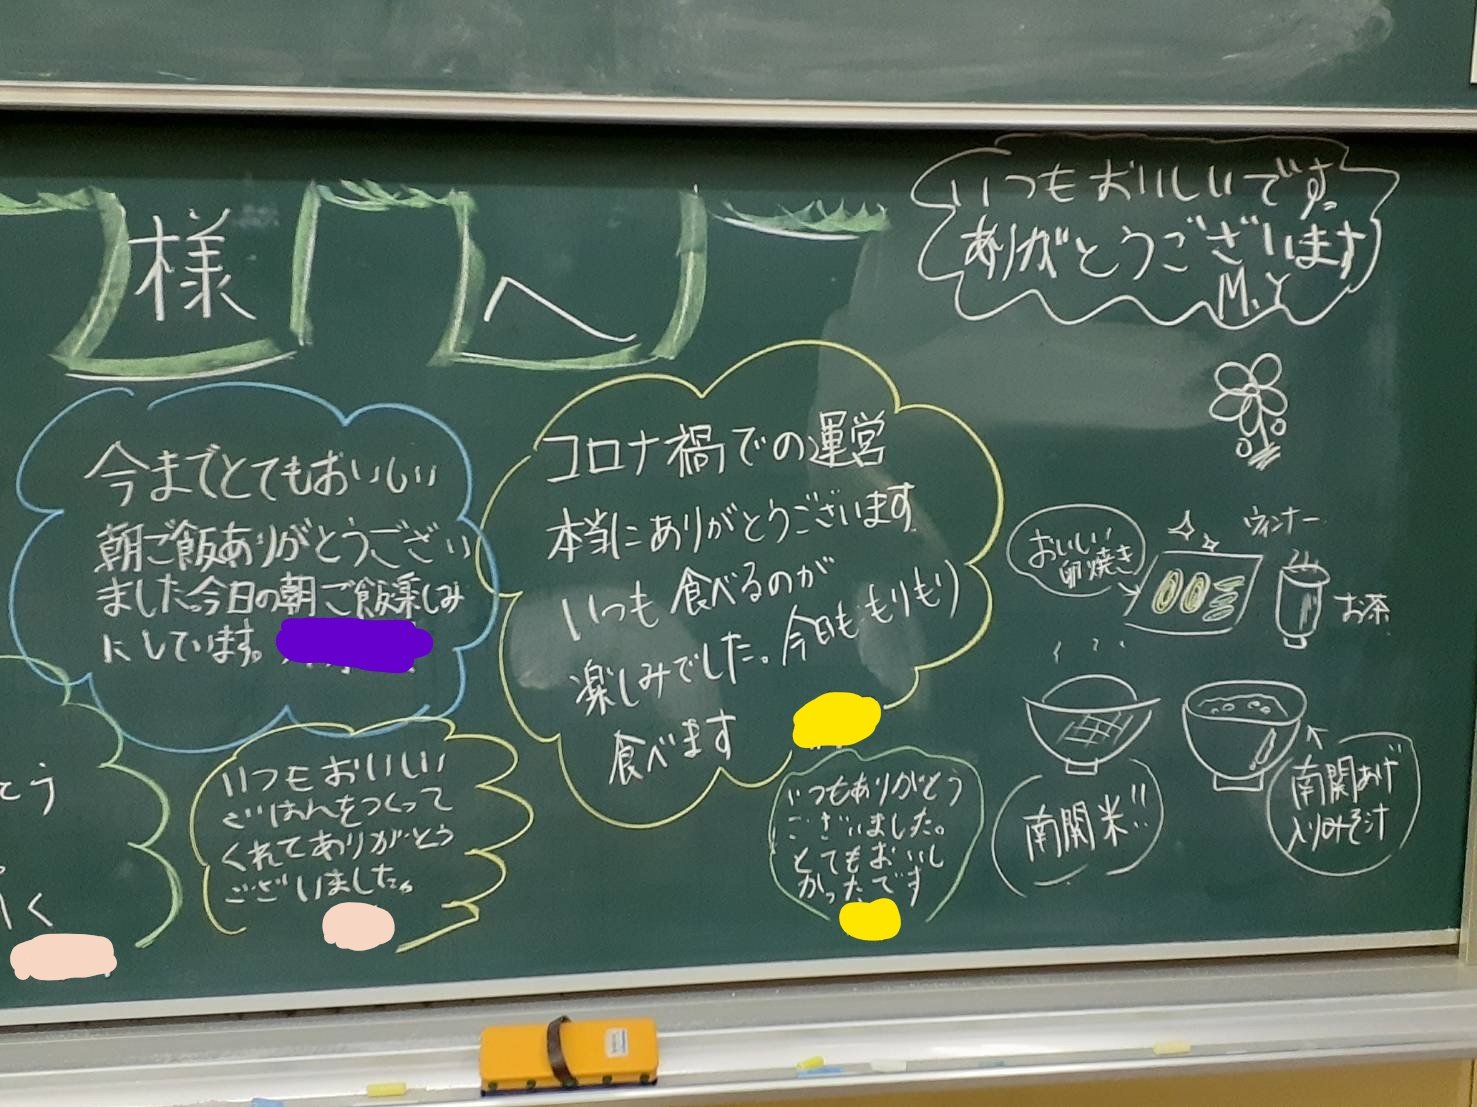 様へ
いつもおいしいです。
ありがとうございます
M.Y
今までとてもおいしい
朝ご飯ありがとうござい
ました。今日の朝ご飯楽しみ
にしています。
コロナ禍での運営
本当にありがとうございます
いつも食べるのが
楽しみでした。今日ももりもり
食べます
おいしい
卵焼き
ウィンナー
お茶
南関米!!
南関あげ
入りみそ汁
とう
く
いつもおいしい
ごはんをつくって
くれてありがとう
ございました。
いつもありがとう
ございました。
とてもおいし
かったです